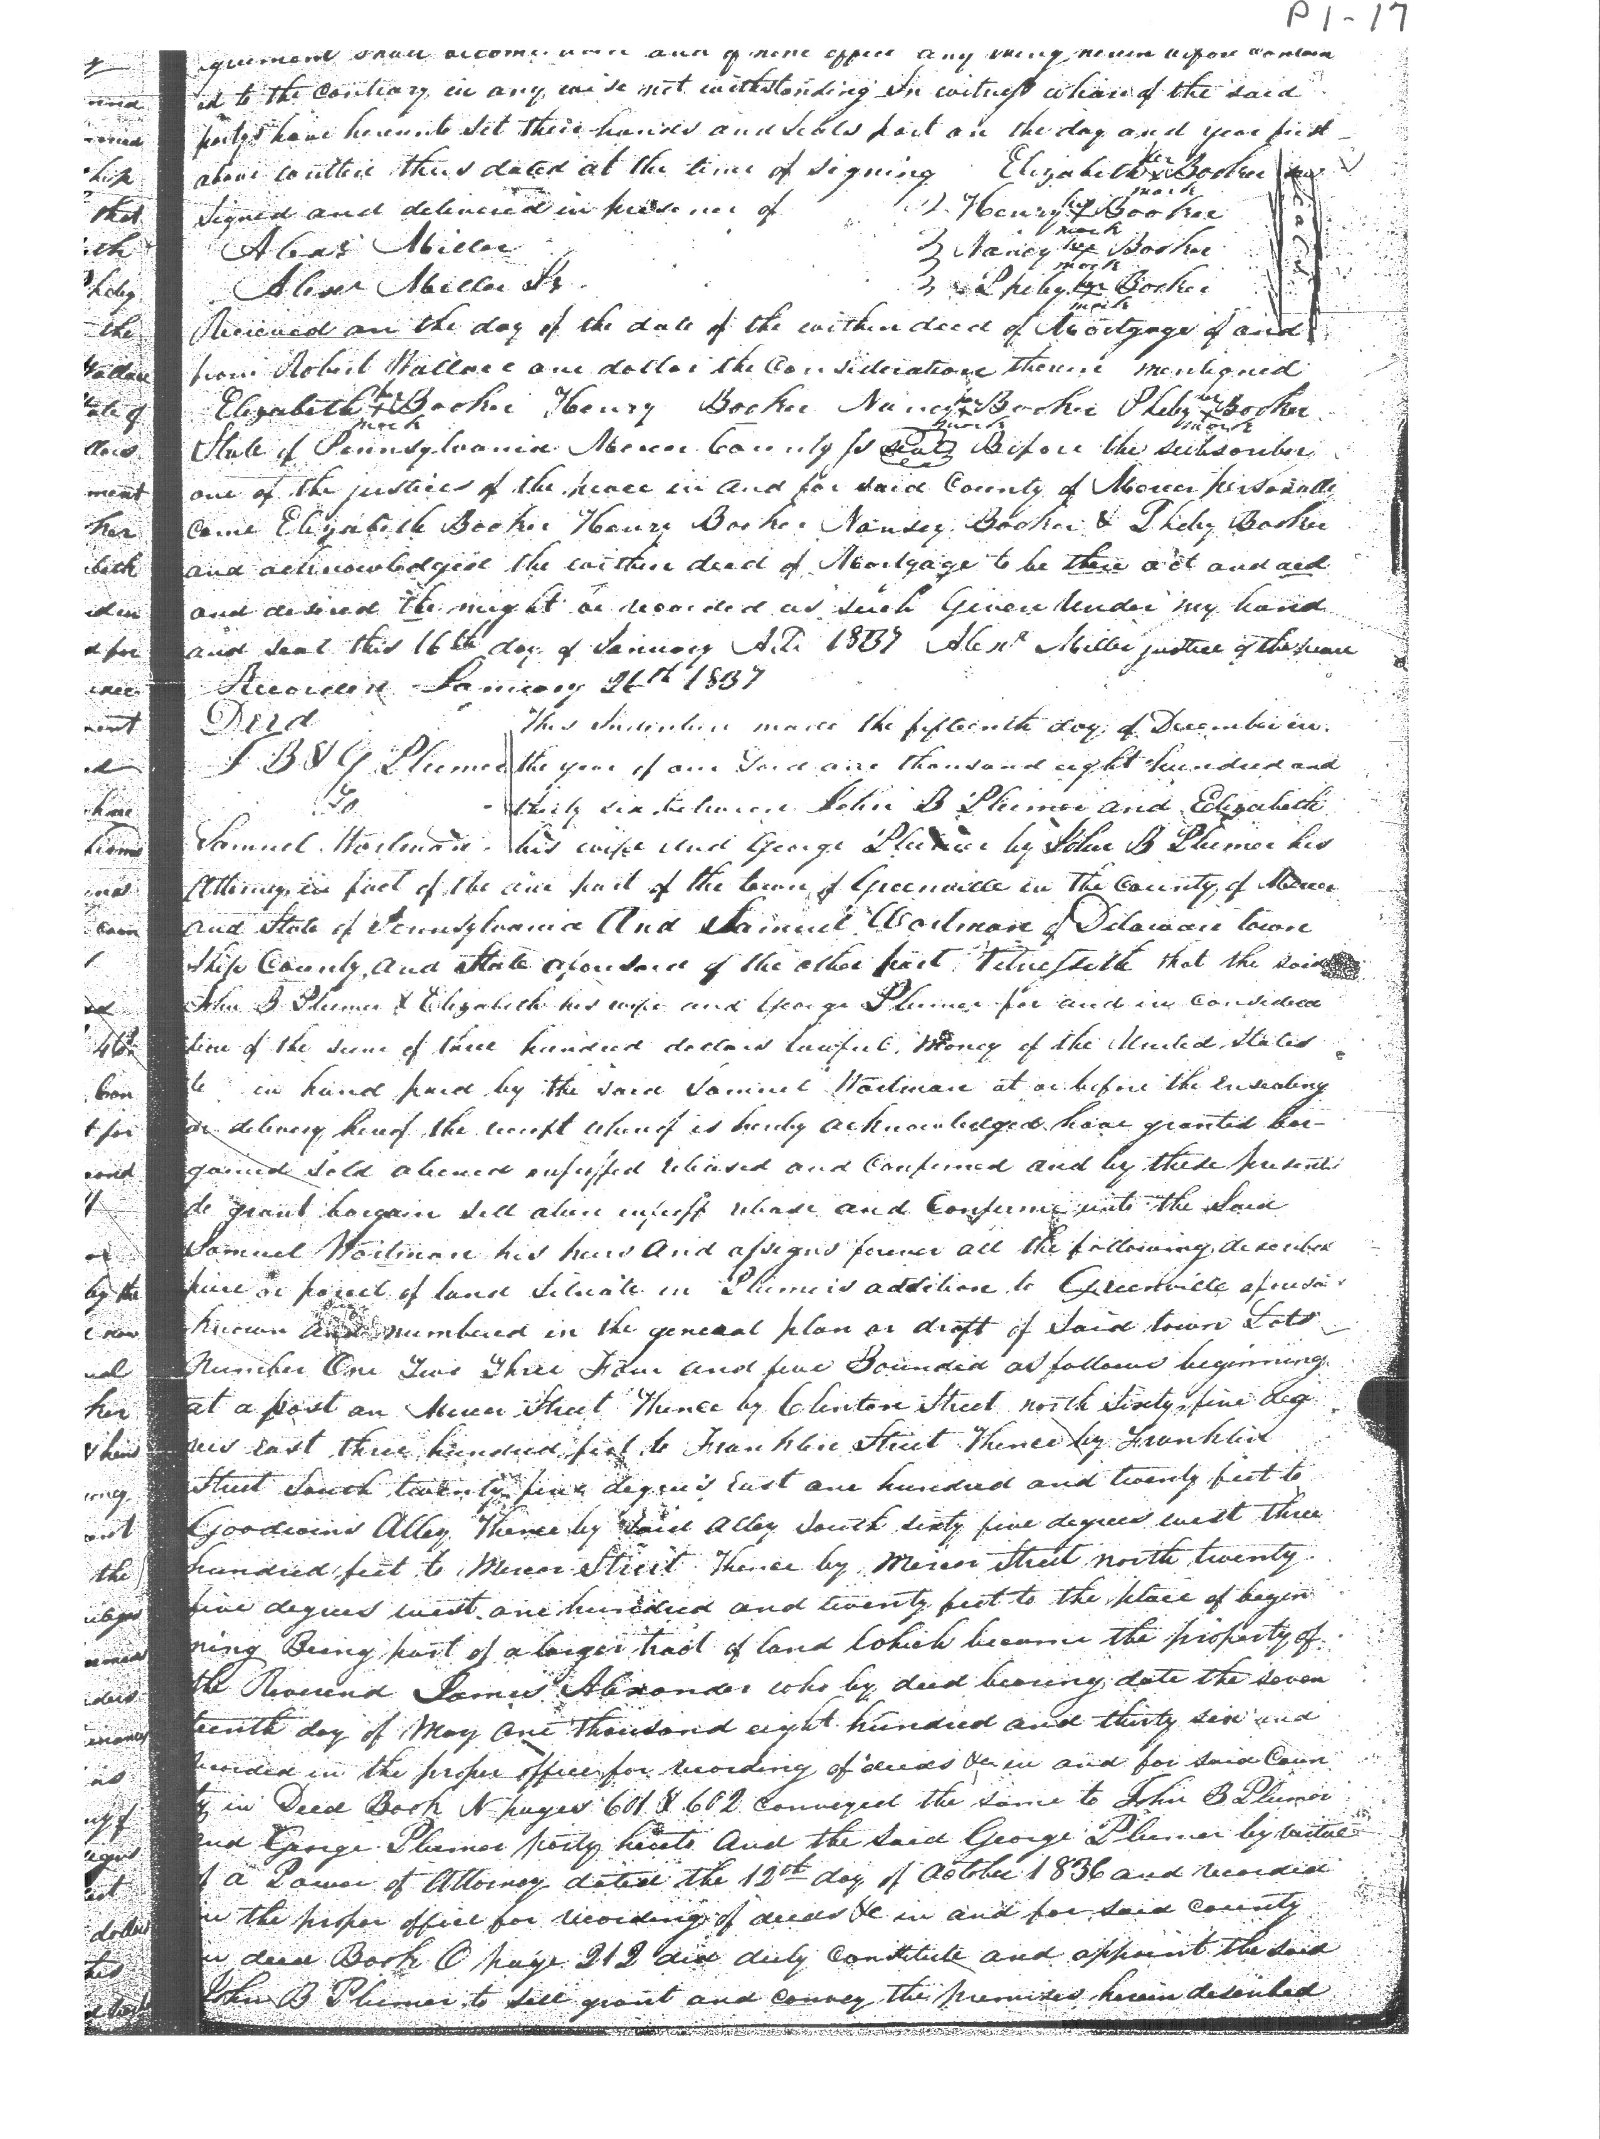 P 1-17
agreement shall become void and of none effect any thing herein before contain
ed to the contrary in any wise not withstanding In witness whareof the said
partys have hereunto set their hands and seals part on the day and year first
above written thus dated at the time of signing Elizabeth her x mark Booher seal
Signed and delivered in presence of Henry his x mark Booher
Alexr Miller Nancy her x mark Booher
Alexr Miller Jr Pheby her x mark Booher
Received on the day of the date of the within deed of Mortgage of and
from Robert Wallace one dollar the Consideration therein mentigned
Elizabeth her x mark Booher Henry Booher Nancy her x mark Booher Pheby her x mark Booher
State of Pennsylvania Mercer County Ss seal Before the subscriber
one of the justices of the peace in and for said County of Mercer personally
came Elizabeth Booher Henry Booher Nansey Booher & Pheby Booher
and acknowledged the within deed of Mortgage to be their act and aed
and desired the might be recorded as such Given Under my hand
and seal this 16th day of January A.D. 1837 Alexr Miller justice of the peace
Recorded January 26th 1837
Deed This Indenture made the fifteenth day of December in
J B & G Plumer the year of our Lord one thousand eight hundred and
To thirty six between John B Plumer and Elizabeth
Samuel Workman his wife and George Plumer by John B Plumer his
Attorney in fact of the one part of the town of Greenville in the County of Mercer
and State of Pennsylvania And Samuel Workman of Delaware town
ship County and State aforesaid of the other part Witnesseth that the said
John B Plumer & Elizabeth his wife and George Plumer for and in considera
tion of the sum of three hundred dollars lawful Money of the United States
to in hand paid by the said Samuel Workman at or before the ensealing
or delivery hereof the receipt whereof is hereby acknowledged have granted bar-
gained sold aliened enfeoffed released and Confirmed and by these presents
do grant bargain sell alien enfeoff release and Confirm unto the Said
Samuel Workman his heirs And assigns forever all the following described
piece or parcel of land Situate in Plumers addition to Greenville aforesai
known and numbered in the general plan or draft of Said town Lots
Number One Two Three Four and five Bounded as follows beginning
at a post on Mercer Street Thence by Clinton Street north Sixty five deg
rees east three hundred feet to Franklin Street Thence by Franklin
Street South twenty five degrees East one hundred and twenty feet to
Goodwins Alley Thence by Said Alley South sixty five degrees west three
hundred feet to Mercer Street Thence by Mercer Street north twenty
five degrees west one hundred and twenty feet to the place of begin
ning Being part of a larger tract of land which became the property of
the Reverend James Alexander who by deed bearing date the seven
teenth day of May one thousand eight hundred and thirty six and
recorded in the proper office for recording of deeds &c in and for said Coun
ty in Deed Book N pages 601 & 602 conveyed the same to John B Plumer
and George Plumer party hereto And the said George Plumer by virtue
of a Power of Attorney dated the 12th day of October 1836 and recorded
in the proper office for recording of deeds &c in and for said county
in deed Book O page 212 did duly Constitute and appoint the said
John B Plumer to sell grant and convey the premises herein described